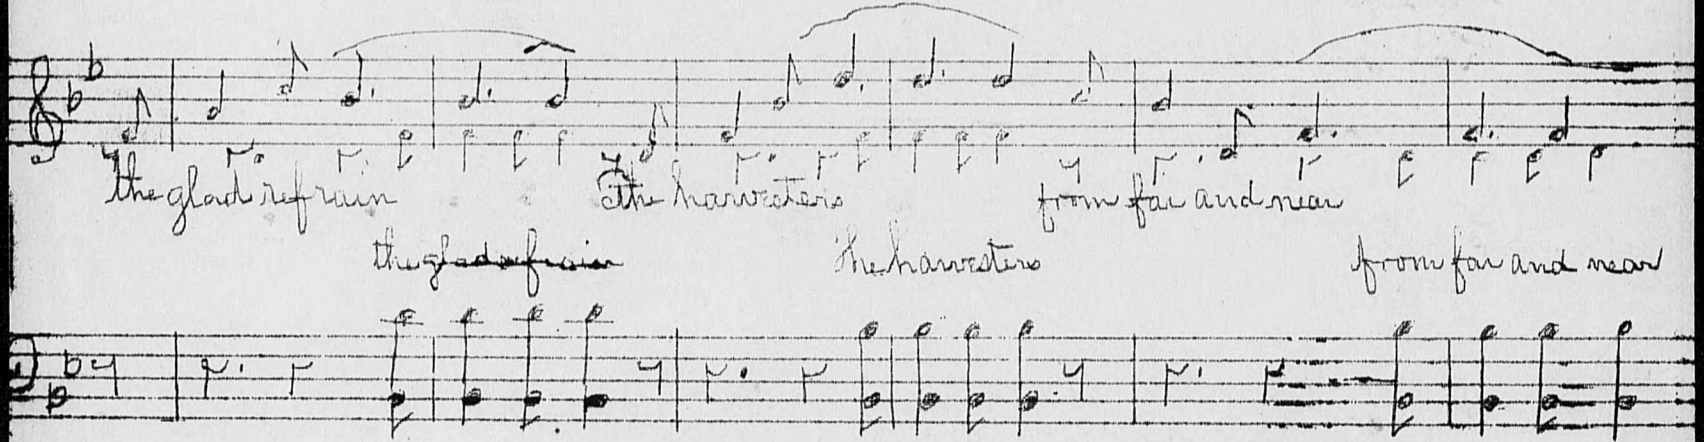 the glad refrain the harvesters from far and near
the glad refrain The harvesters from far and near